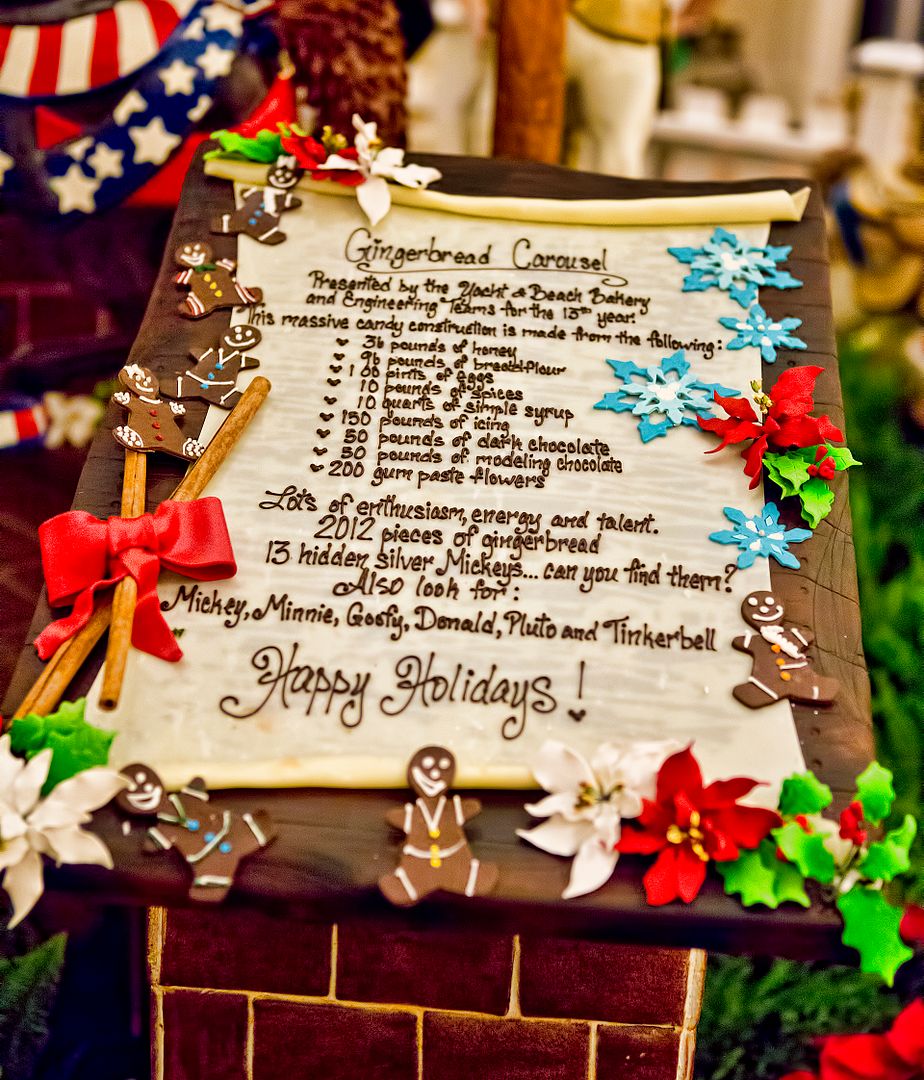 Gingerbread Carousel
Presented by the Yacht & Beach Bakery
and Engineering Teams for the 13th year.
This massive candy construction is made from the following:
36 pounds of honey
96 pounds of bread flour
100 pints of eggs
10 pounds of spices
10 quarts of simple syrup
150 pounds of icing
50 pounds of dark chocolate
50 pounds of modeling chocolate
200 gum paste flowers
Lots of enthusiasm, energy and talent.
2012 pieces of gingerbread
13 hidden silver Mickeys... can you find them?
Also look for:
Mickey, Minnie, Goofy, Donald, Pluto and Tinkerbell
Happy Holidays!